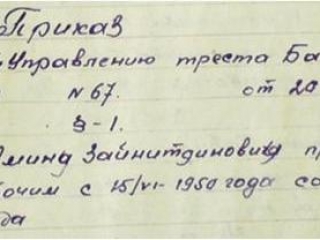 Приказ
Управлению треста Ба
N 67. от 20
§-1.
Зайнитдиновича п
бочим с 15/VI-1950 года со
да